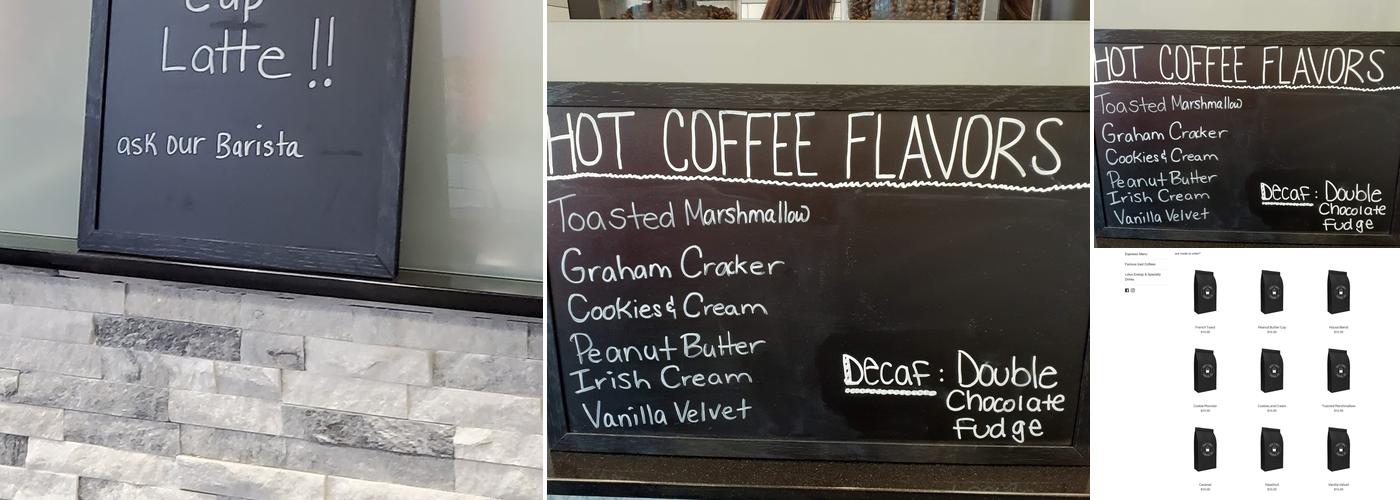 Cup
Latte !!
ask our Barista
HOT COFFEE FLAVORS
Toasted Marshmallow
Graham Cracker
Cookies & Cream
Peanut Butter
Irish Cream
Vanilla Velvet
Decaf: Double
Chocolate
Fudge
HOT COFFEE FLAVORS
Toasted Marshmallow
Graham Cracker
Cookies & Cream
Peanut Butter
Irish Cream
Vanilla Velvet
Decaf: Double
Chocolate
Fudge
Espresso Menu
Famous Iced Coffees
Lotus Energy & Specialty
Drinks
are made to order!*
French Toast
Peanut Butter Cup
House Blend
Cookie Monster
Cookies and Cream
Toasted Marshmallow
Caramel
Hazelnut
Vanilla Velvet